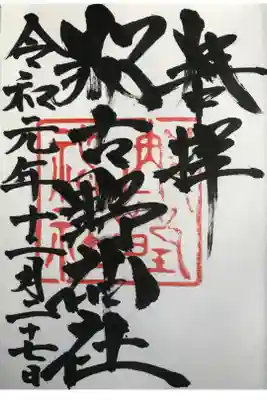 奉拝
古野神社
令和元年十二月二十七日